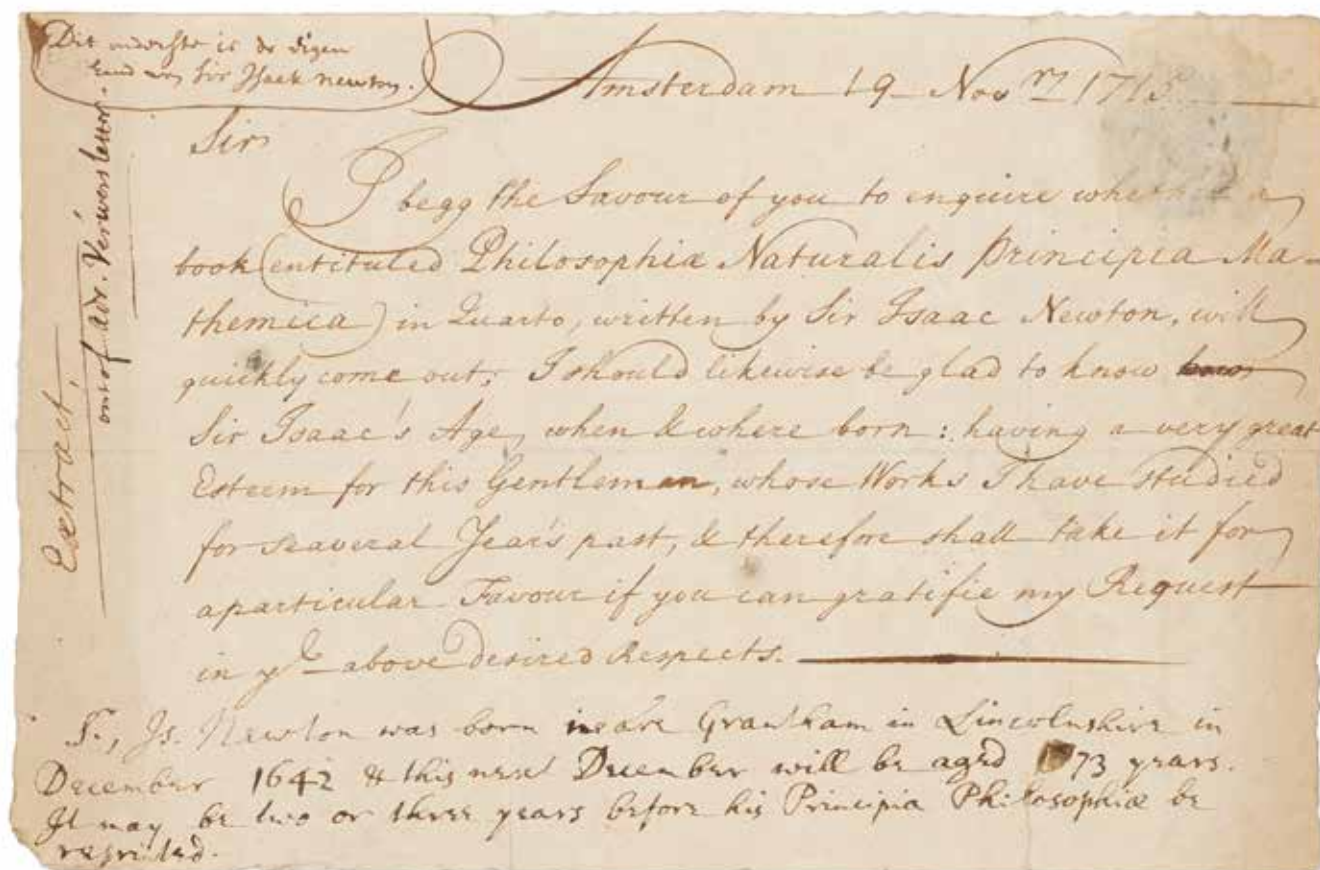 Dit onderste is de eigen
hand van Sir Isaek newton.
Amsterdam 19 Nov.ʳʸ 171
Sir
I begg the favour of you to enquire whether a
book (entituled Philosophiæ Naturalis Principia Ma-
themica) in Quarto, written by Sir Isaac Newton, will
quickly come out; I should likewise be glad to know
Sir Isaac's Age, when & where born: having a very great
Esteem for this Gentleman, whose Works I have studied
for seaveral Year's past, & therefore shall take it for
a particular Favour if you can gratifie my Request
in yᵉ above desired Respects.
Sr, Is. Newton was born neare Grantham in Lincolnshire in
December 1642 & this next December will be aged 73 years.
It may be two or three years before his Principia Philosophiæ be
reprinted.
Extract
out of adr. Verwers letter.